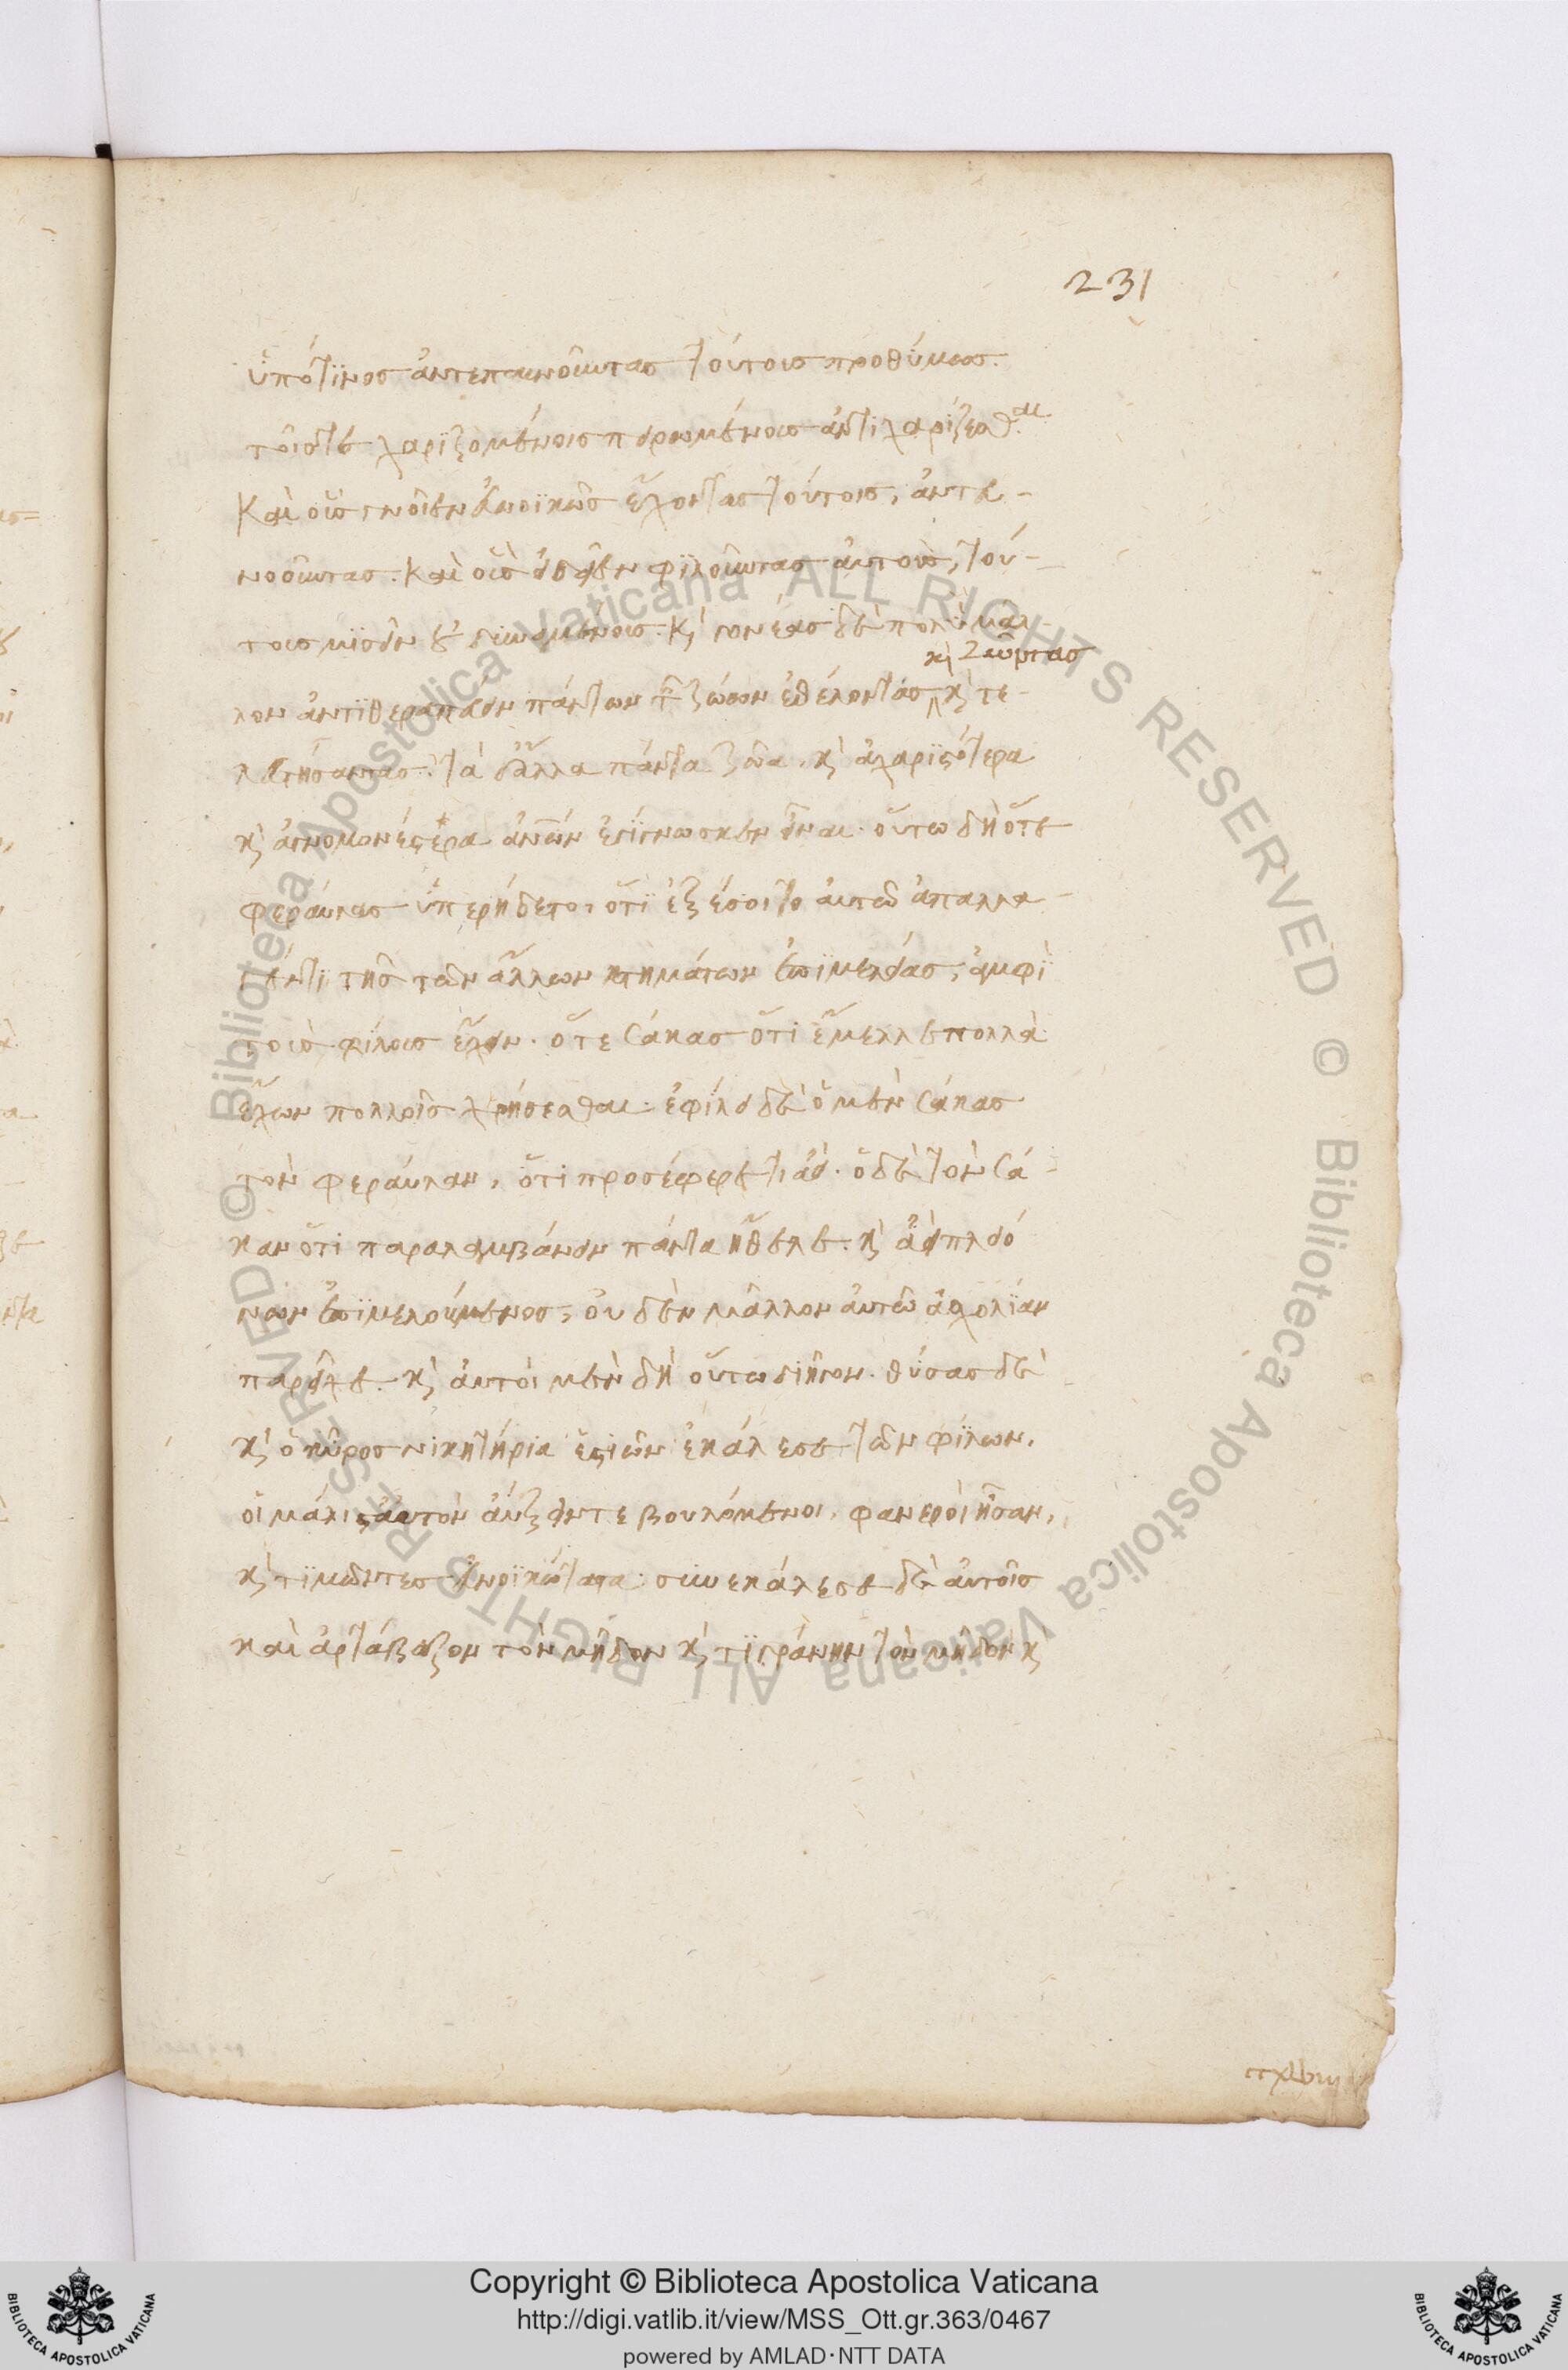 231
ὑπό τινος ἀντεπαινοῦντας τούτοις προθύμως.
τοῖς τε χαριζομένοις πειρωμένοις ἀντιχαρίζεσθαι.
Καὶ οὓς γνοῖεν εὐνοϊκῶς ἔχοντας τούτοις, ἀντευ-
νοοῦντας. Καὶ οὓς εἰδεῖεν φιλοῦντας αὐτοὺς, τού-
τοις μισεῖν οὐ δυναμένοις. κ γονέας δὲ πολὺ μᾶλ-
κ ζῶντας
λον ἀντιθεραπεύειν πάντων τῶν ζώων ἐθέλοντας κ τε-
λευτήσαντας. τὰ δ' ἄλλα πάντα ζῶα. κ ἀχαριστότερα
κ ἀγνομονέστερα ἀνῶν ἐγίγνωσκεν εἶναι. οὕτω δὴ ὅτε
φεραύλας ὑπερήδετο, ὅτι ἐξέσοιτο αὐτῶ ἀπαλλα-
γέντι τῆς τῶν ἄλλων κτημάτων ἐπιμελείας, ἀμφὶ
τοὺς φίλους ἔχειν. ὅτε σάκας ὅτι ἔμελλε πολλὰ
ἔχων πολλοῖς χρήσεσθαι. ἐφίλει δὲ ὁ μὲν σάκας
τὸν φεραύλαν, ὅτι προσέφερε τι ἀεί. ὁ δὲ τὸν σά-
καν ὅτι παραλαμβάνειν πάντα ἤθελε. κ ἀεὶ πλειό
νων ἐπιμελούμενος, οὐδὲν μᾶλλον αὐτῶ ἀσχολίαν
παρεῖχε. κ αὐτοὶ μὲν δὴ οὕτω διῆγον. θύσας δὲ
κ ὁ κῦρος νικητήρια ἑστιῶν ἐκάλεσε τῶν φίλων,
οἳ μάλιστ' αὐτὸν αὔξειν τε βουλόμενοι, φανεροὶ ἦσαν,
κ τιμῶντες εὐνοϊκώτατα. συνεκάλεσε δὲ αὐτοῖς
καὶ ἀρτάβαζον τὸν μῆδον κ τιγράνην τὸν μῆδον κ
Copyright © Biblioteca Apostolica Vaticana
http://digi.vatlib.it/view/MSS_Ott.gr.363/0467
powered by AMLAD·NTT DATA